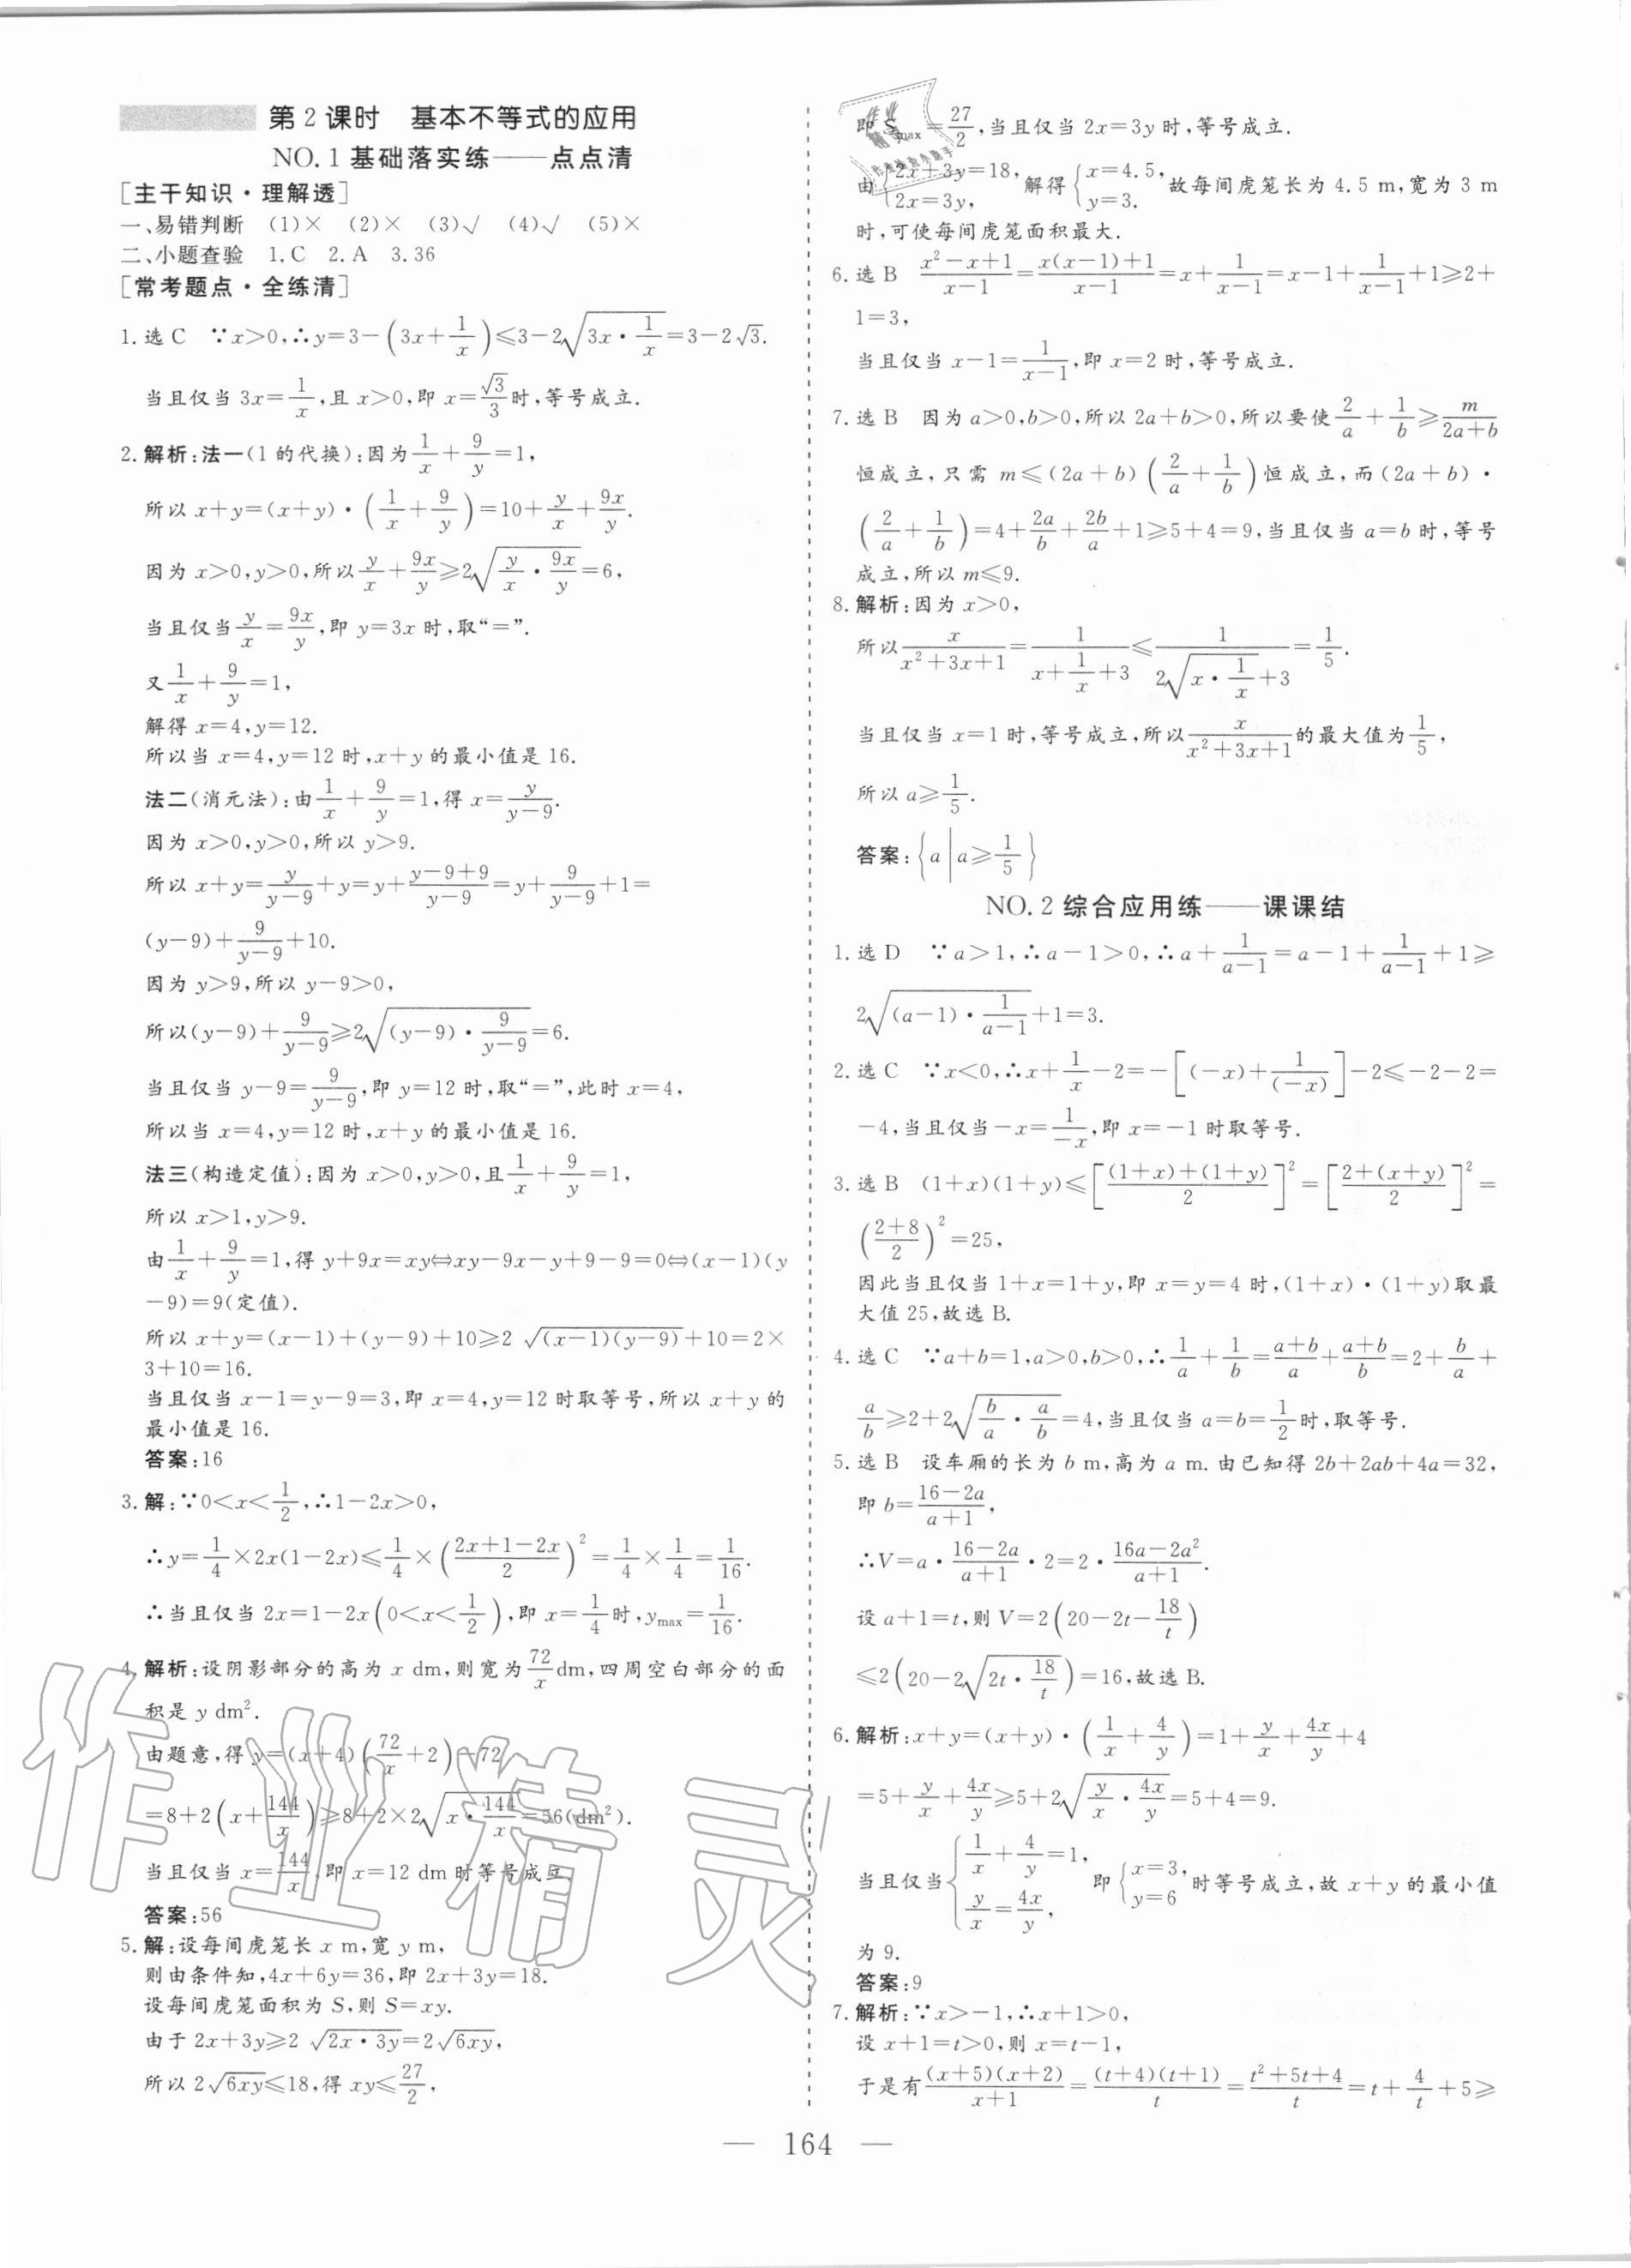 第2课时 基本不等式的应用
NO.1 基础落实练——点点清
[主干知识·理解透]
一、易错判断 (1)× (2)× (3)√ (4)√ (5)×
二、小题查验 1.C 2.A 3.36
[常考题点·全练清]
1.选C ∵x>0,∴y=3-(3x+1/x)≤3-2√(3x·1/x)=3-2√3.
当且仅当 3x=1/x,且 x>0,即 x=√3/3时,等号成立.
2.解析:法一(1的代换):因为1/x+9/y=1,
所以 x+y=(x+y)·(1/x+9/y)=10+y/x+9x/y.
因为 x>0,y>0,所以y/x+9x/y≥2√(y/x·9x/y)=6,
当且仅当y/x=9x/y,即 y=3x 时,取“=”.
又1/x+9/y=1,
解得 x=4,y=12.
所以当 x=4,y=12 时,x+y 的最小值是 16.
法二(消元法):由1/x+9/y=1,得 x=y/(y-9).
因为 x>0,y>0,所以 y>9.
所以 x+y=y/(y-9)+y=y+(y-9+9)/(y-9)=y+9/(y-9)+1=
(y-9)+9/(y-9)+10.
因为 y>9,所以 y-9>0,
所以(y-9)+9/(y-9)≥2√((y-9)·9/(y-9))=6.
当且仅当 y-9=9/(y-9),即 y=12 时,取“=”,此时 x=4,
所以当 x=4,y=12 时,x+y 的最小值是 16.
法三(构造定值):因为 x>0,y>0,且1/x+9/y=1,
所以 x>1,y>9.
由1/x+9/y=1,得 y+9x=xy⇔xy-9x-y+9-9=0⇔(x-1)(y
-9)=9(定值).
所以 x+y=(x-1)+(y-9)+10≥2 √((x-1)(y-9))+10=2×
3+10=16.
当且仅当 x-1=y-9=3,即 x=4,y=12 时取等号,所以 x+y 的
最小值是 16.
答案:16
3.解:∵0<x<1/2,∴1-2x>0,
∴y=1/4×2x(1-2x)≤1/4×((2x+1-2x)/2)²=1/4×1/4=1/16.
∴当且仅当 2x=1-2x(0<x<1/2),即 x=1/4时,ymax=1/16.
4.解析:设阴影部分的高为 x dm,则宽为72/x dm,四周空白部分的面
积是 y dm².
由题意,得 y=(x+4)(72/x+2)-72
=8+2(x+144/x)≥8+2×2√(x·144/x)=56(dm²).
当且仅当 x=144/x,即 x=12 dm 时等号成立.
答案:56
5.解:设每间虎笼长 x m,宽 y m,
则由条件知,4x+6y=36,即 2x+3y=18.
设每间虎笼面积为 S,则 S=xy.
由于 2x+3y≥2 √(2x·3y)=2√(6xy),
所以 2√(6xy)≤18,得 xy≤27/2,
即 Smax=27/2,当且仅当 2x=3y 时,等号成立.
由{2x+3y=18, 2x=3y, 解得{x=4.5, y=3. 故每间虎笼长为 4.5 m,宽为 3 m
时,可使每间虎笼面积最大.
6.选B (x²-x+1)/(x-1)=(x(x-1)+1)/(x-1)=x+1/(x-1)=x-1+1/(x-1)+1≥2+
1=3,
当且仅当 x-1=1/(x-1),即 x=2 时,等号成立.
7.选B 因为 a>0,b>0,所以 2a+b>0,所以要使2/a+1/b≥m/(2a+b)
恒成立,只需 m≤(2a+b)(2/a+1/b)恒成立,而(2a+b)·
(2/a+1/b)=4+2a/b+2b/a+1≥5+4=9,当且仅当 a=b 时,等号
成立,所以 m≤9.
8.解析:因为 x>0,
所以x/(x²+3x+1)=1/(x+1/x+3)≤1/(2√(x·1/x)+3)=1/5.
当且仅当 x=1 时,等号成立,所以x/(x²+3x+1)的最大值为1/5,
所以 a≥1/5.
答案:{a|a≥1/5}
NO.2 综合应用练——课课结
1.选D ∵a>1,∴a-1>0,∴a+1/(a-1)=a-1+1/(a-1)+1≥
2√((a-1)·1/(a-1))+1=3.
2.选C ∵x<0,∴x+1/x-2=-[(-x)+1/(-x)]-2≤-2-2=
-4,当且仅当-x=1/-x,即 x=-1 时取等号.
3.选B (1+x)(1+y)≤[((1+x)+(1+y))/2]²=[(2+(x+y))/2]²=
((2+8)/2)²=25,
因此当且仅当 1+x=1+y,即 x=y=4 时,(1+x)·(1+y)取最
大值 25,故选 B.
4.选C ∵a+b=1,a>0,b>0,∴1/a+1/b=(a+b)/a+(a+b)/b=2+b/a+
a/b≥2+2√(b/a·a/b)=4,当且仅当 a=b=1/2时,取等号.
5.选B 设车厢的长为 b m,高为 a m.由已知得 2b+2ab+4a=32,
即 b=(16-2a)/(a+1),
∴V=a·(16-2a)/(a+1)·2=2·(16a-2a²)/(a+1).
设 a+1=t,则 V=2(20-2t-18/t)
≤2(20-2√(2t·18/t))=16,故选 B.
6.解析:x+y=(x+y)·(1/x+4/y)=1+y/x+4x/y+4
=5+y/x+4x/y≥5+2√(y/x·4x/y)=5+4=9.
当且仅当{1/x+4/y=1, y/x=4x/y, 即{x=3, y=6 时等号成立,故 x+y 的最小值
为 9.
答案:9
7.解析:∵x>-1,∴x+1>0,
设 x+1=t>0,则 x=t-1,
于是有(x+5)(x+2)/(x+1)=(t+4)(t+1)/t=(t²+5t+4)/t=t+4/t+5≥
— 164 —
作业精灵